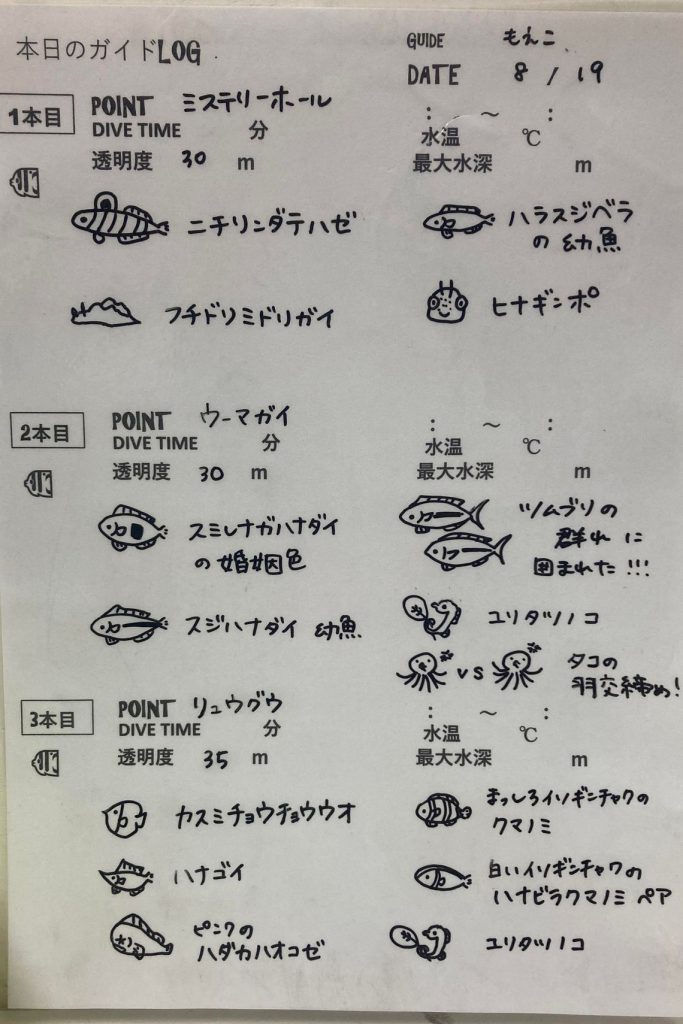 本日のガイドLOG
GUIDE もえこ
DATE 8 / 19
1本目
POINT ミステリーホール
DIVE TIME 分
: ~ :
水温 ℃
透明度 30 m
最大水深 m
ニチリンダテハゼ
ハラスジベラ
の幼魚
フチドリミドリガイ
ヒナギンポ
2本目
POINT ウーマガイ
DIVE TIME 分
: ~ :
水温 ℃
透明度 30 m
最大水深 m
スミレナガハナダイ
の婚姻色
ツムブリの
群れに
囲まれた!!!
スジハナダイ 幼魚
ユリタツノコ
vs
タコの
羽交締め!
3本目
POINT リュウグウ
DIVE TIME 分
: ~ :
水温 ℃
透明度 35 m
最大水深 m
カスミチョウチョウウオ
まっしろイソギンチャクの
クマノミ
ハナゴイ
白いイソギンチャクの
ハナビラクマノミ ペア
ピンクの
ハダカハオコゼ
ユリタツノコ